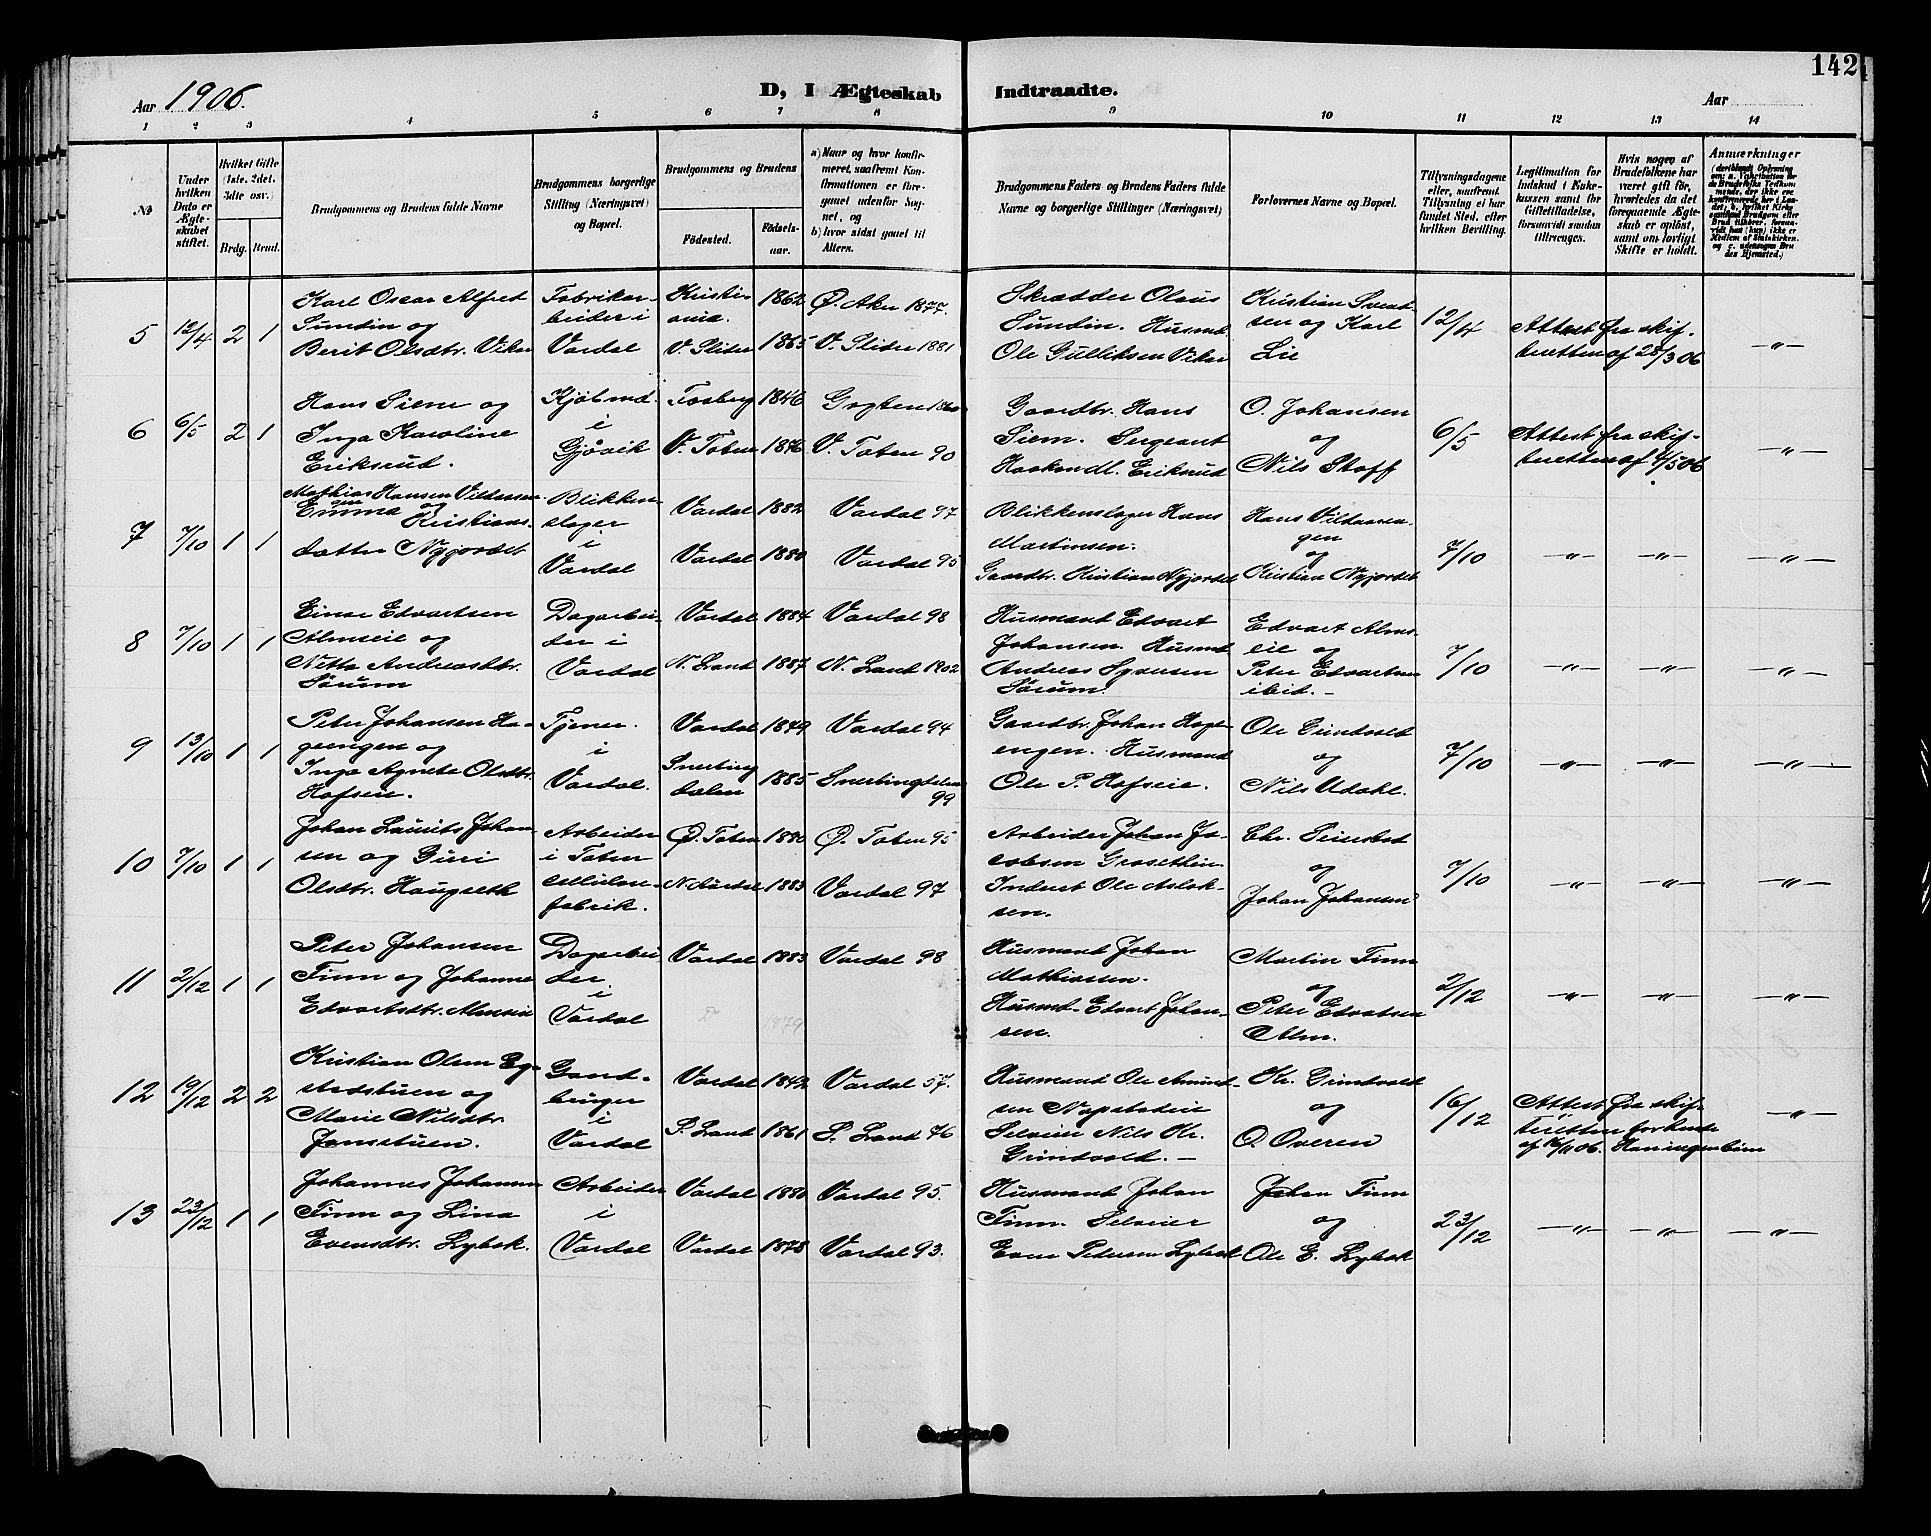 142
Aar 1906.
D, I Ægteskab
Indtraadte.
Aar
1 2 3 4 5 6 7 8 9 10 11 12 13 14
№
Under hvilken Dato er Ægteskabet stiftet.
Hvilket Gifte (1ste, 2det, 3die osv.)
Brdg. Brud.
Brudgommens og Brudens fulde Navne
Brudgommens borgerlige Stilling (Næringsvei) og Bopæl.
Brudgommens og Brudens
Födested.
Födselsaar.
a) Naar og hvor konfirmeret, saafremt Konfirmationen er foregaaet udenfor Sognet, og
b) hvor sidst gaaet til Alters.
Brudgommens Faders og Brudens Faders fulde Navne og borgerlige Stillinger (Næringsvei)
Forlovernes Navne og Bopæl.
Tillysningsdagene eller, saafremt Tillysning ei har fundet Sted, efter hvilken Bevilling.
Legitimation for Indskud i Enkekassen samt for Giftetilladelse, forsaavidt saadan tiltrænges.
Hvis nogen af Brudefolkene har været gift för, hvorledes da det foregaaende Ægteskab er oplöst, samt om lovligt Skifte er holdt.
Anmærkninger
5 12/4 2 1
Karl Oscar Alfred
Sundin og
Berit Olsdtr. Viker
Fabrikar-
beider i
Vardal
Kristi-
ania 1862 Ø. Aker 1877.
V. Slidre 1865 V. Slidre 1881
Skrædder Olaus
Sundin. Husmd
Ole Gulliksen Viker
Kristian Svend-
sen og Karl
Lie
12/4
Attest fra skif-
teretten af 28/3 06
—"—
6 6/5 2 1
Hans Siem og
Inga Karoline
Eriksrud.
Kjøbmd.
i
Gjøvik
Faaberg 1846
V. Toten 1876 V. Toten 90
Gaardbr. Hans
Siem. Sergeant
Haaken dl. Eriksrud
O. Johansen
og
Nils Skoff
6/5
Attest fra skif-
teretten af 4/5 06
—"—
7 7/10 1 1
Mathias Hansen
Emma og Kristians-
datter Nygjordet
Blikken-
slager
i
Vardal
Vardal 1882 Vardal 97
Vardal 1880 Vardal 95
Blikkenslager Hans
Martinsen.
Gaardbr. Kristian Nygjordet
Hans
gen
og
Kristian Nygjordet
7/10
—"— —"— —"—
8 7/10 1 1
Einar Edvartsen
Almseie og
Netta Andreasdtr.
Sørum
Dagarbei-
der i
Vardal
Vardal 1884 Vardal 98
N. Land 1887 N. Land 1902
Husmand Edvart
Johansen. Husmd
Andreas Syversen
Sørum.
Edvart Alms-
eie og
Peter Edvartsen
ibid.-
7/10
—"— —"— —"—
9 13/10 1 1
Peter Johansen Ha-
geengen og
Inga Agnete Olsdtr.
Hofseie.
Tjener
i
Vardal.
Vardal 1879 Vardal 94
Snerting-
dalen 1885 Snertingdalen
99
Gaardbr. Johan Hage-
engen. Husmand
Ole P. Hofseie.
Ole Grindvold
og
Nils Udahl.
7/10
—"— —"— —"—
10 7/10 1 1
Johan Laurits Johan-
sen og Guri
Olsdtr. Haugseth
Arbeider
i Toten
cellulose-
fabrik.
Ø. Toten 1880 Ø. Toten 95
1883 Vardal 97
Arbeider Johan Ja-
cobsen
Inderst Ole Aslak-
sen.
Chr. Seierstad
og
Johan Johansen
7/10
—"— —"— —"—
11 2/12 1 1
Peter Johansen
Finn og Johanne
Edvartsdtr. Almseie
Dagarbei-
der.
i
Vardal
Vardal 1883 Vardal 98
1879
Husmand Johan
Mathiassen.
Husmd. Edvart Johan-
sen.
Martin Finn
og
Peter Edvartsen
Alm.
2/12
—"— —"— —"—
12 19/12 2 2
Kristian Olsen Eg-
stadstuen og
Marie Nilsdtr.
Jomsstuen.
Gaard-
bruger
i
Vardal
Vardal 1842 Vardal 57.
S. Land 1861 S. Land 76
Husmand Ole Amund-
sen
Selveier Nils Kr.
Grindvold.-
Kr. Grindvold
og
O. Overen
16/12
Attest fra skif-
teretten for hende
af 16/11 06. Han ingen børn
—"—
13 23/12 1 1
Johannes Johansen
Finn og Lina
Evensdtr. Lybek.
Arbeider
i
Vardal
Vardal 1880 Vardal 95.
Vardal 1878 Vardal 93.
Husmand Johan
Finn. Selveier
Even Pedersen Lybek
Johan Finn
og
Ole E. Lybek
23/12
—"— —"— —"—